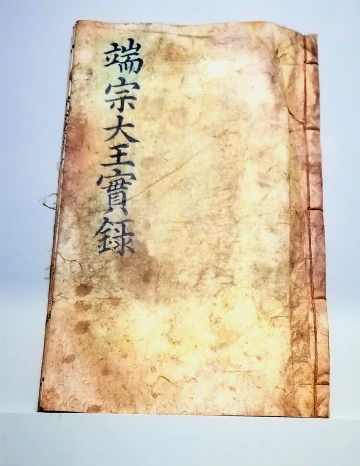 端宗大王實録